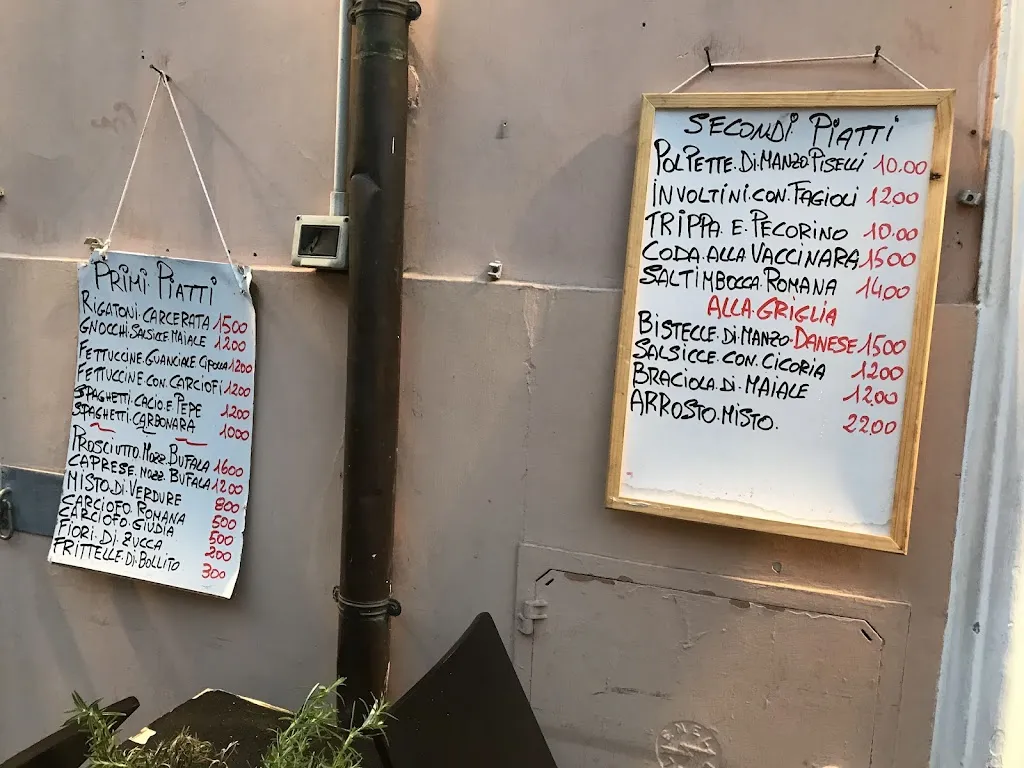 PRIMI PIATTI
RIGATONI CARCERATA 1500
GNOCCHI SALSICCE MAIALE 1200
FETTUCCINE GUANCIALE CIPOLLA 1200
FETTUCCINE CON CARCIOFI 1200
SPAGHETTI CACIO E PEPE 1200
SPAGHETTI CARBONARA 1000
PROSCIUTTO MOZZ. BUFALA 1600
CAPRESE MOZZ. BUFALA 1200
MISTO DI VERDURE 800
CARCIOFO ROMANA 500
CARCIOFO GIUDIA 500
FIORI DI ZUCCA 200
FRITTELLE DI BOLLITO 300
SECONDI PIATTI
POLPETTE.DI.MANZO.PISELLI 10.00
INVOLTINI.CON.FAGIOLI 12.00
TRIPPA.E.PECORINO 10.00
CODA.ALLA VACCINARA 1500
SALTIMBOCCA.ROMANA 14.00
ALLA.GRIGLIA
BISTELLE.DI.MANZO.DANESE 1500
SALSICCE.CON.CICORIA 1200
BRACIOLA.DI.MAIALE 12.00
ARROSTO.MISTO. 22.00